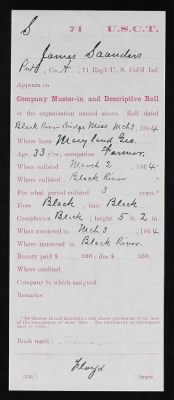 S 71 U.S.C.T.
James Saunders
Pvt, Co. A, 71 Reg't U. S. Col'd Inf.
Appears on
Company Muster-in and Descriptive Roll
of the organization named above. Roll dated
Black River Bridge Miss Mch 3, 1864
Where born Maryland Geo.
Age 33 y'rs; occupation Farmer
When enlisted March 2, 1864
Where enlisted Black River
For what period enlisted 3 years.
Eyes Black; hair Black
Complexion Black; height 5 ft. 2 in.
When mustered in Mch 3, 1864
Where mustered in Black River.
Bounty paid $ 100; due $ 100
Where credited
Company to which assigned
Remarks:
Book mark:
Lloyd